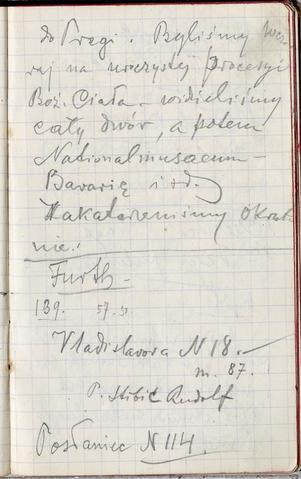 do Pragi. Byliśmy wczo-
raj na uroczystej procesyi
Boż. Ciała. widzieliśmy
cały dwór, a potem
Nationalmusaeum -
Bavarię i t d.
okrut
nie.!
Furth -
139. 57.
Vladislavova N 18. -
m. 87.
P. Hibić Rudolf
Posłaniec N 114.